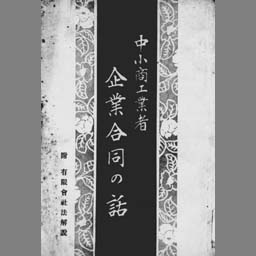 中小商工業者
企業合同の話
附 有限會社法解說